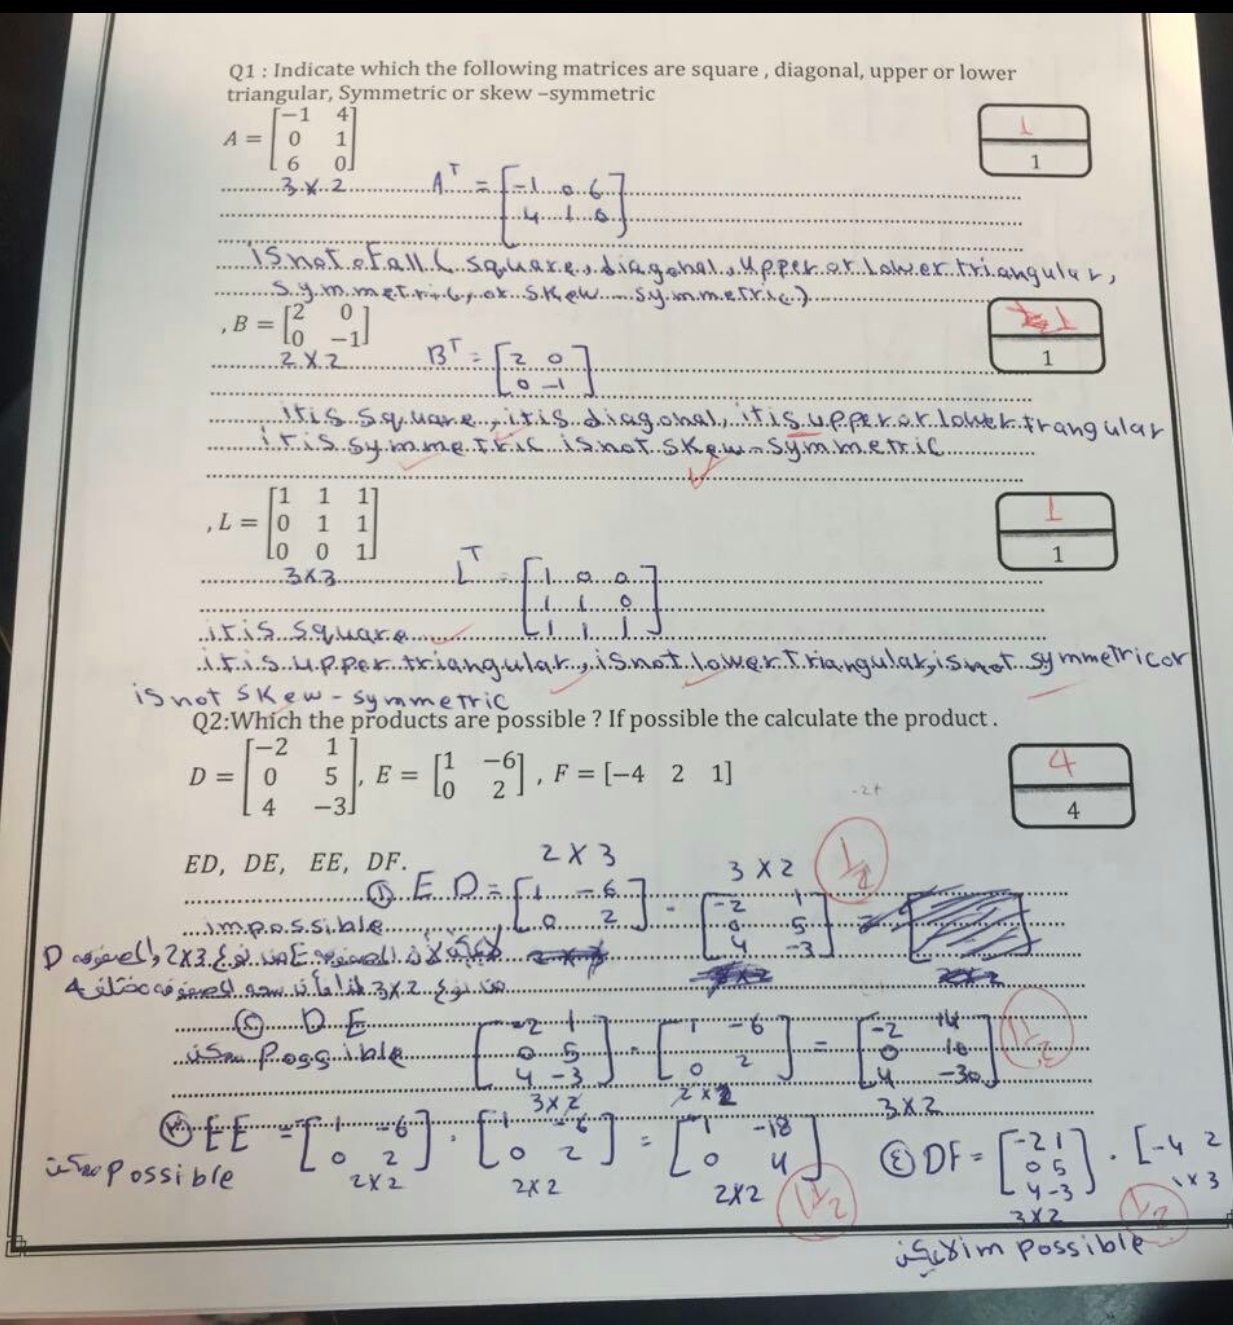 Q1 : Indicate which the following matrices are square , diagonal, upper or lower
triangular, Symmetric or skew –symmetric
A = [−1 4
0 1
6 0]
1
1
3 x 2
A^T = [-1 0 6
4 1 0]
is not of all ( square, diagonal, upper or lower triangular,
symmetric, or skew - symmetric)
, B = [2 0
0 −1]
1
1
2 x 2
B^T = [2 0
0 -1]
it is square, it is diagonal, it is upper or lower trangular
it is symmetric is not skew - symmetric
, L = [1 1 1
0 1 1
0 0 1]
1
1
3x3
L^T = [1 0 0
1 1 0
1 1 1]
it is square
it is upper triangular, is not lower triangular, is not symmetric or
is not skew - symmetric
Q2:Which the products are possible ? If possible the calculate the product .
D = [−2 1
0 5
4 −3] , E = [1 −6
0 2] , F = [−4 2 1]
4
4
ED, DE, EE, DF.
2 x 3
3 x 2
① E D = [1 -6
0 2] · [-2 1
0 5
4 -3] =
impossible
المصفوفة E من نوع 2x3 والمصفوفة D
من نوع 3x2
② D E
[-2 1
0 5
4 -3] · [1 -6
0 2] = [-2 14
0 10
4 -30]
يمكن Poggible
3x2
2x2
3x2
③ EE = [1 -6
0 2] · [1 -6
0 2] = [1 -18
0 4]
يمكن possible
2x2
2x2
2x2
1 1/2
④ DF = [-2 1
0 5
4 -3] · [-4 2
3x2
1x3
1/2
لا يمكن im possible